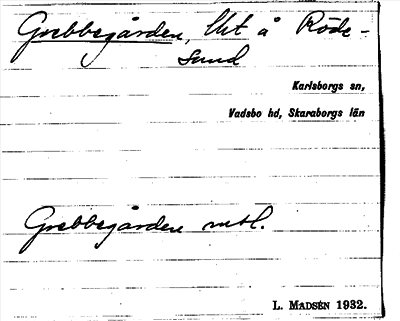 Grebbegården, lht å Röde-
sund
Karlsborgs sn,
Vadsbo hd, Skaraborgs län
Grebbegården mtl.
L. MADSÉN 1932.